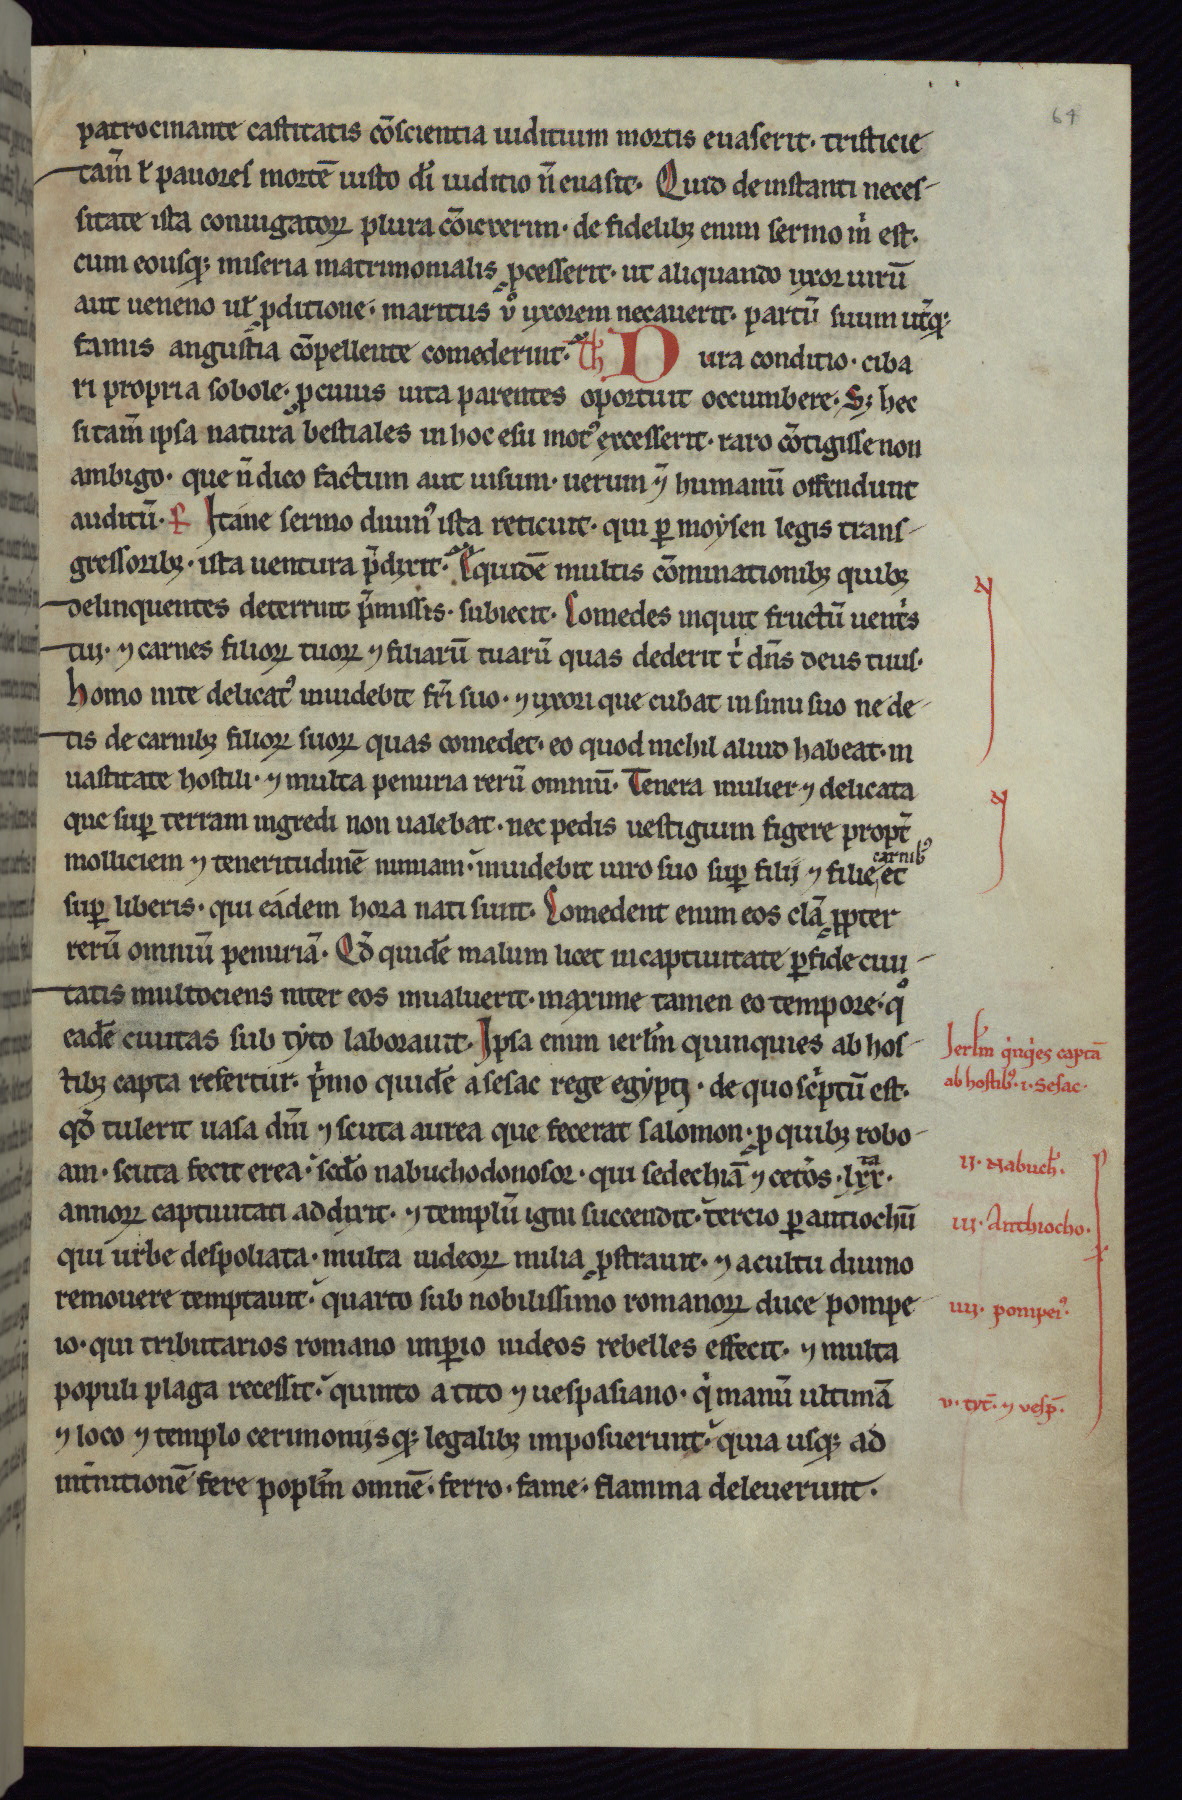 64
patrocinante castitatis c̄oscientia iuditium mortis euaserit· tristicie
tam̄ ł pauores mortē iusto d̄i iuditio n̄ euasit· Quid de instanti neces-
sitate ista coniugatoꝝ plura c̄oiecerim· de fidelibꝫ enim sermo m̍ est·
cum eousqꝫ miseria matrimonialis ꝓcesserit· ut aliquando uxor uirū
aut ueneno uł ꝓditione· maritus ů uxorem necauerit· partū suum utͣqꝫ·
famis angustia c̄opellente comederint· Th Dura conditio· ciba
ri propria sobole· ꝓ cuius uita parentes oportuit occumbere· Sꝫ hec
si tam̄ ipsa natura bestiales in hoc esu mot᾽ excesserit· raro c̄otigisse non
ambigo· que n̄ dico factum aut uisum· uerum ⁊ humanū offendunt
auditū· F Itane sermo diuin᾽ ista reticuit· qui ꝑ moẏsen legis trans-
gressoribꝫ· ista uentura p̄dixit· Siquidē multis c̄ominationibꝫ quibꝫ
delinquentes deterruit p̄missis· subiecit· Comedes inquit fructū uent̍s
tui· ⁊ carnes filioꝝ tuoꝝ ⁊ filiarū tuarū quas dederit t̍ dn̄s deus tuus·
Homo in te delicat᾽ inuidebit fr̄i suo· ⁊ uxori que cubat in sinu suo ne de-
tis de carnibꝫ filioꝝ suoꝝ quas comedet· eo quod nichil aliud habeat· in
uastitate hostili· ⁊ multa penuria rerū omniū· Tenera mulier ⁊ delicata
que suꝑ terram ingredi non ualebat· nec pedis uestigium figere propt̄
molliciem ⁊ teneritudinē nimiam· inuidebit uiro suo suꝑ filij ⁊ filie carnib᾽ et
suꝑ liberis· qui eadem hora nati sunt· Comedent enim eos clā ꝓpter
rerū omniū penuriā· Qd̄ quidē malum licet in captiuitate ꝑfide ciui-
tatis multociens inter eos inualuerit· maxime tamen eo tempore· qͦ
eadē ciuitas sub tẏto laborauit· Ipsa enim ierl̄m quinquies ab hos-
tibꝫ capta refertur· p̍mo quidē a sesac rege egẏpti· de quo sc̍ptū est·
qd̄ tulerit uasa dn̄i ⁊ scuta aurea que fecerat salomon· ꝓ quibꝫ robo-
am· scuta fecit erea· sc̄do nabuchodonosor· qui sedechiā ⁊ cet̄os· lxxͭᵃ·
annoꝝ captiuitati addixit· ⁊ templū igni succendit· tercio ꝑ antiochū
qui urbe despoliata· multa iudeoꝝ milia ꝓstrauit· ⁊ a cultu diuino
remouere temptauit· quarto sub nobilissimo romanoꝝ duce pompe
io· qui tributarios romano imꝑio iudeos rebelles effecit· ⁊ multa
populi plaga recessit· quinto a tito ⁊ uespasiano· q̍ manū ultimā
⁊ loco ⁊ templo cerimoniisqꝫ legalibꝫ imposuerunt· quia usqꝫ ad
int̄nitionē fere popl̄m omnē· ferro· fame· flamma deleuerunt·
Ierl̄m q̍nq̍es captā
ab hostib᾽· i· Sesac·
ii· Nabuch̄·
iii· Anthiocho·
iiii· pompei᾽·
v· tẏt̄· ⁊ vesp̄·